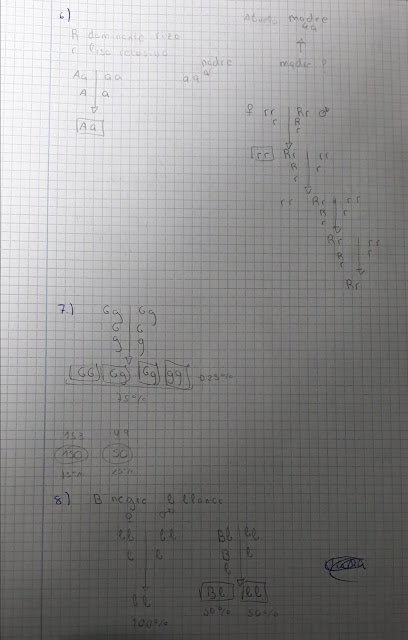 6)
Abuelo madre
aa
R dominante rizo
r liso recesivo
padre
madre ?
Aa | aa
aa
a
A | a
Aa
♀ rr | Rr ♂
r R
r
rr Rr | rr
R r
r
rr Rr | rr
R r
r
Rr | rr
R r
r
Rr
7.) Gg | Gg
G G
g g
GG Gg Gg gg 0,25%
75%
153 49
150 50
75% 25%
8) B negro b blanco
♀ ♂
bb | bb
b b
bb
100%
Bb | bb
B b
b
Bb bb
50% 50%